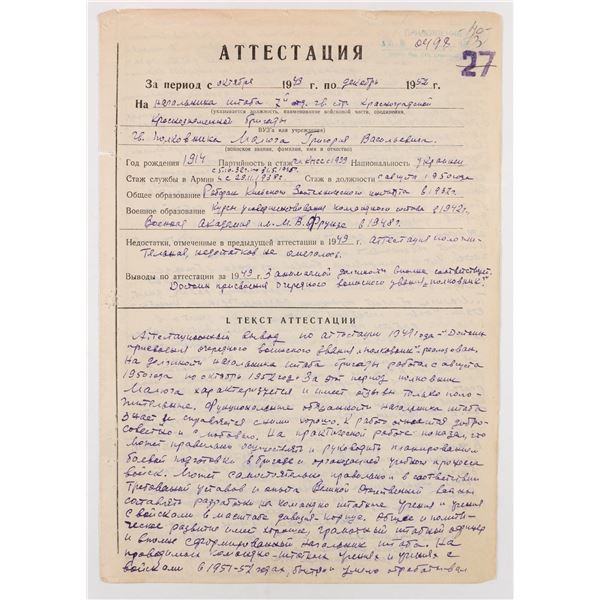 0498
27
АТТЕСТАЦИЯ
За период с октября 1949 г. по декабрь 1952 г.
На начальника штаба 2й отд. гв. стр. Красноградской
(указывается должность, наименование войсковой части, соединения,
Краснознаменной бригады
ВУЗ'а или учреждения)
гв. полковника Малюга Григория Васильевича.
(воинское звание, фамилия, имя и отчество)
Год рождения 1914 Партийность и стаж чл. КПСС с 1939 Национальность украинец
Стаж службы в Армии Стаж в должности с августа 1950 года
Общее образование Рабфак Киевского Зоотехнического института в 1932г.
Военное образование Курсы усовершенствования командного состава в 1942г.
Военная Академия им. М. В. Фрунзе в 1948г.
Недостатки, отмеченные в предыдущей аттестации в 1949 г. аттестация положи-
тельная, недостатков не имелось.
Выводы по аттестации за 1949 г. Занимаемой должности вполне соответствует.
Достоин присвоения очередного воинского звания „полковник".
I. ТЕКСТ АТТЕСТАЦИИ
Аттестационный вывод по аттестации 1949 года - „Достоин
присвоения очередного воинского звания „полковник" реализован.
На должности начальника штаба бригады работает с августа
1950 года по октябрь 1952 года. За этот период полковник
Малюга характеризуется и имеет отзывы только поло-
жительные. Функциональные обязанности начальника штаба
знает и справляется с ними хорошо. К работе относится добро-
совестно и с любовью. На практической работе показал, что
может правильно осуществлять и руководить планированием
боевой подготовки в бригаде и организацией учебного процесса
войск. Может самостоятельно правильно и в соответствии
требований уставов и опыта Великой Отечественной войны
составлять разработки на командно штабные учения и учения
с войсками в масштабе дивизия-корпус. Общее и полити-
ческое развитие имеет хорошее, грамотный штабной офицер
и вполне сформированный начальник штаба. На
проводимых командно-штабных учениях и учениях с
войсками в 1951-52 годах, быстро и умело отрабатывал